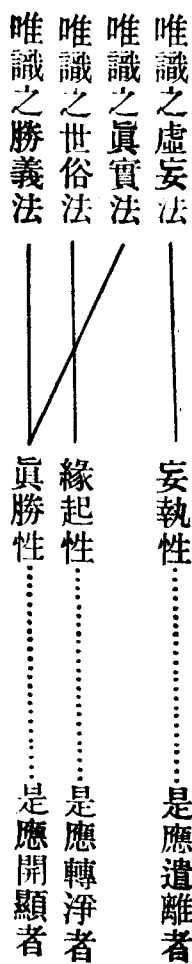 唯識之虛妄法 妄執性………………是應遺離者
唯識之眞實法
唯識之世俗法 緣起性………………是應轉淨者
唯識之勝義法 眞勝性………………是應開顯者